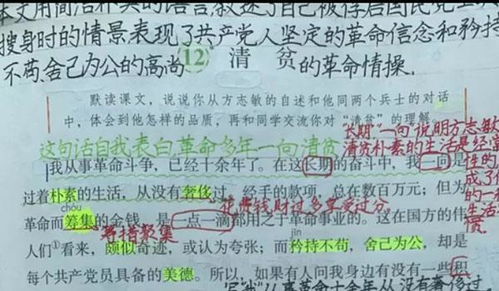 本文用简洁朴实的语言叙述了自己被俘后国民党士兵
搜身时的情景表现了共产党人坚定的革命信念和矜持
不苟、舍己为公的高尚的革命情操.
(12) 清 贫
默读课文，说说你从方志敏的自述和他同两个兵士的对话
中，体会到他怎样的品质，再和同学交流你对“清贫”的理解。
这句话自我表白革命多年一向清贫
“长期”一向说明方志敏
清贫朴素的生活是经常
性的
我从事革命斗争，已经十余年了。在这长期的奋斗中，我一向是
过着朴素的生活，从没有奢侈过。经手的款项，总在数百万元；但为
花费钱财过多享受过分
chóu
革命而筹集的金钱，是一点一滴都用之于革命事业的。这在国方的伟
筹措聚集
jīn
人们①看来，颇似奇迹，或认为夸张；而矜持不苟，舍己为公，却是
每个共产党员具备的美德。所以，如果有人问我身边有没有一些积